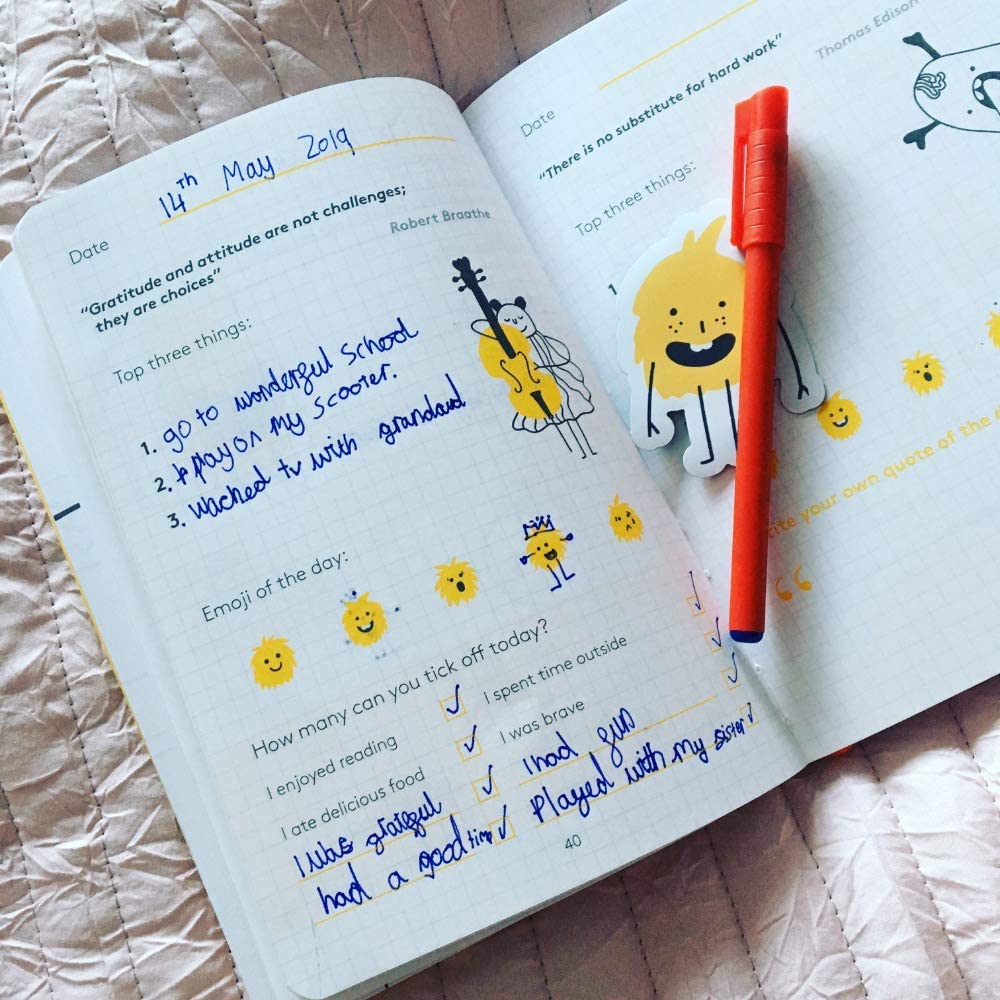 14th May 2019
Date
"Gratitude and attitude are not challenges;
they are choices"
Robert Braathe
Top three things:
1. go to wonderful school
2. play on my scooter.
3. Wached tv with grandaud
Emoji of the day:
How many can you tick off today?
I enjoyed reading
I spent time outside
I ate delicious food
I was brave
I was grateful
I had fun
had a good time
Played with my sister
40
Date
"There is no substitute for hard work"
Thomas Edison
Top three things:
1
your own quote of the
“